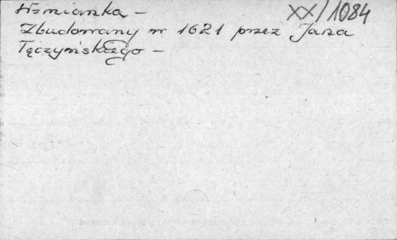 Wśmianka – XX/1084
Zbudowany w 1621 przez Jana
Tęczyńskiego –